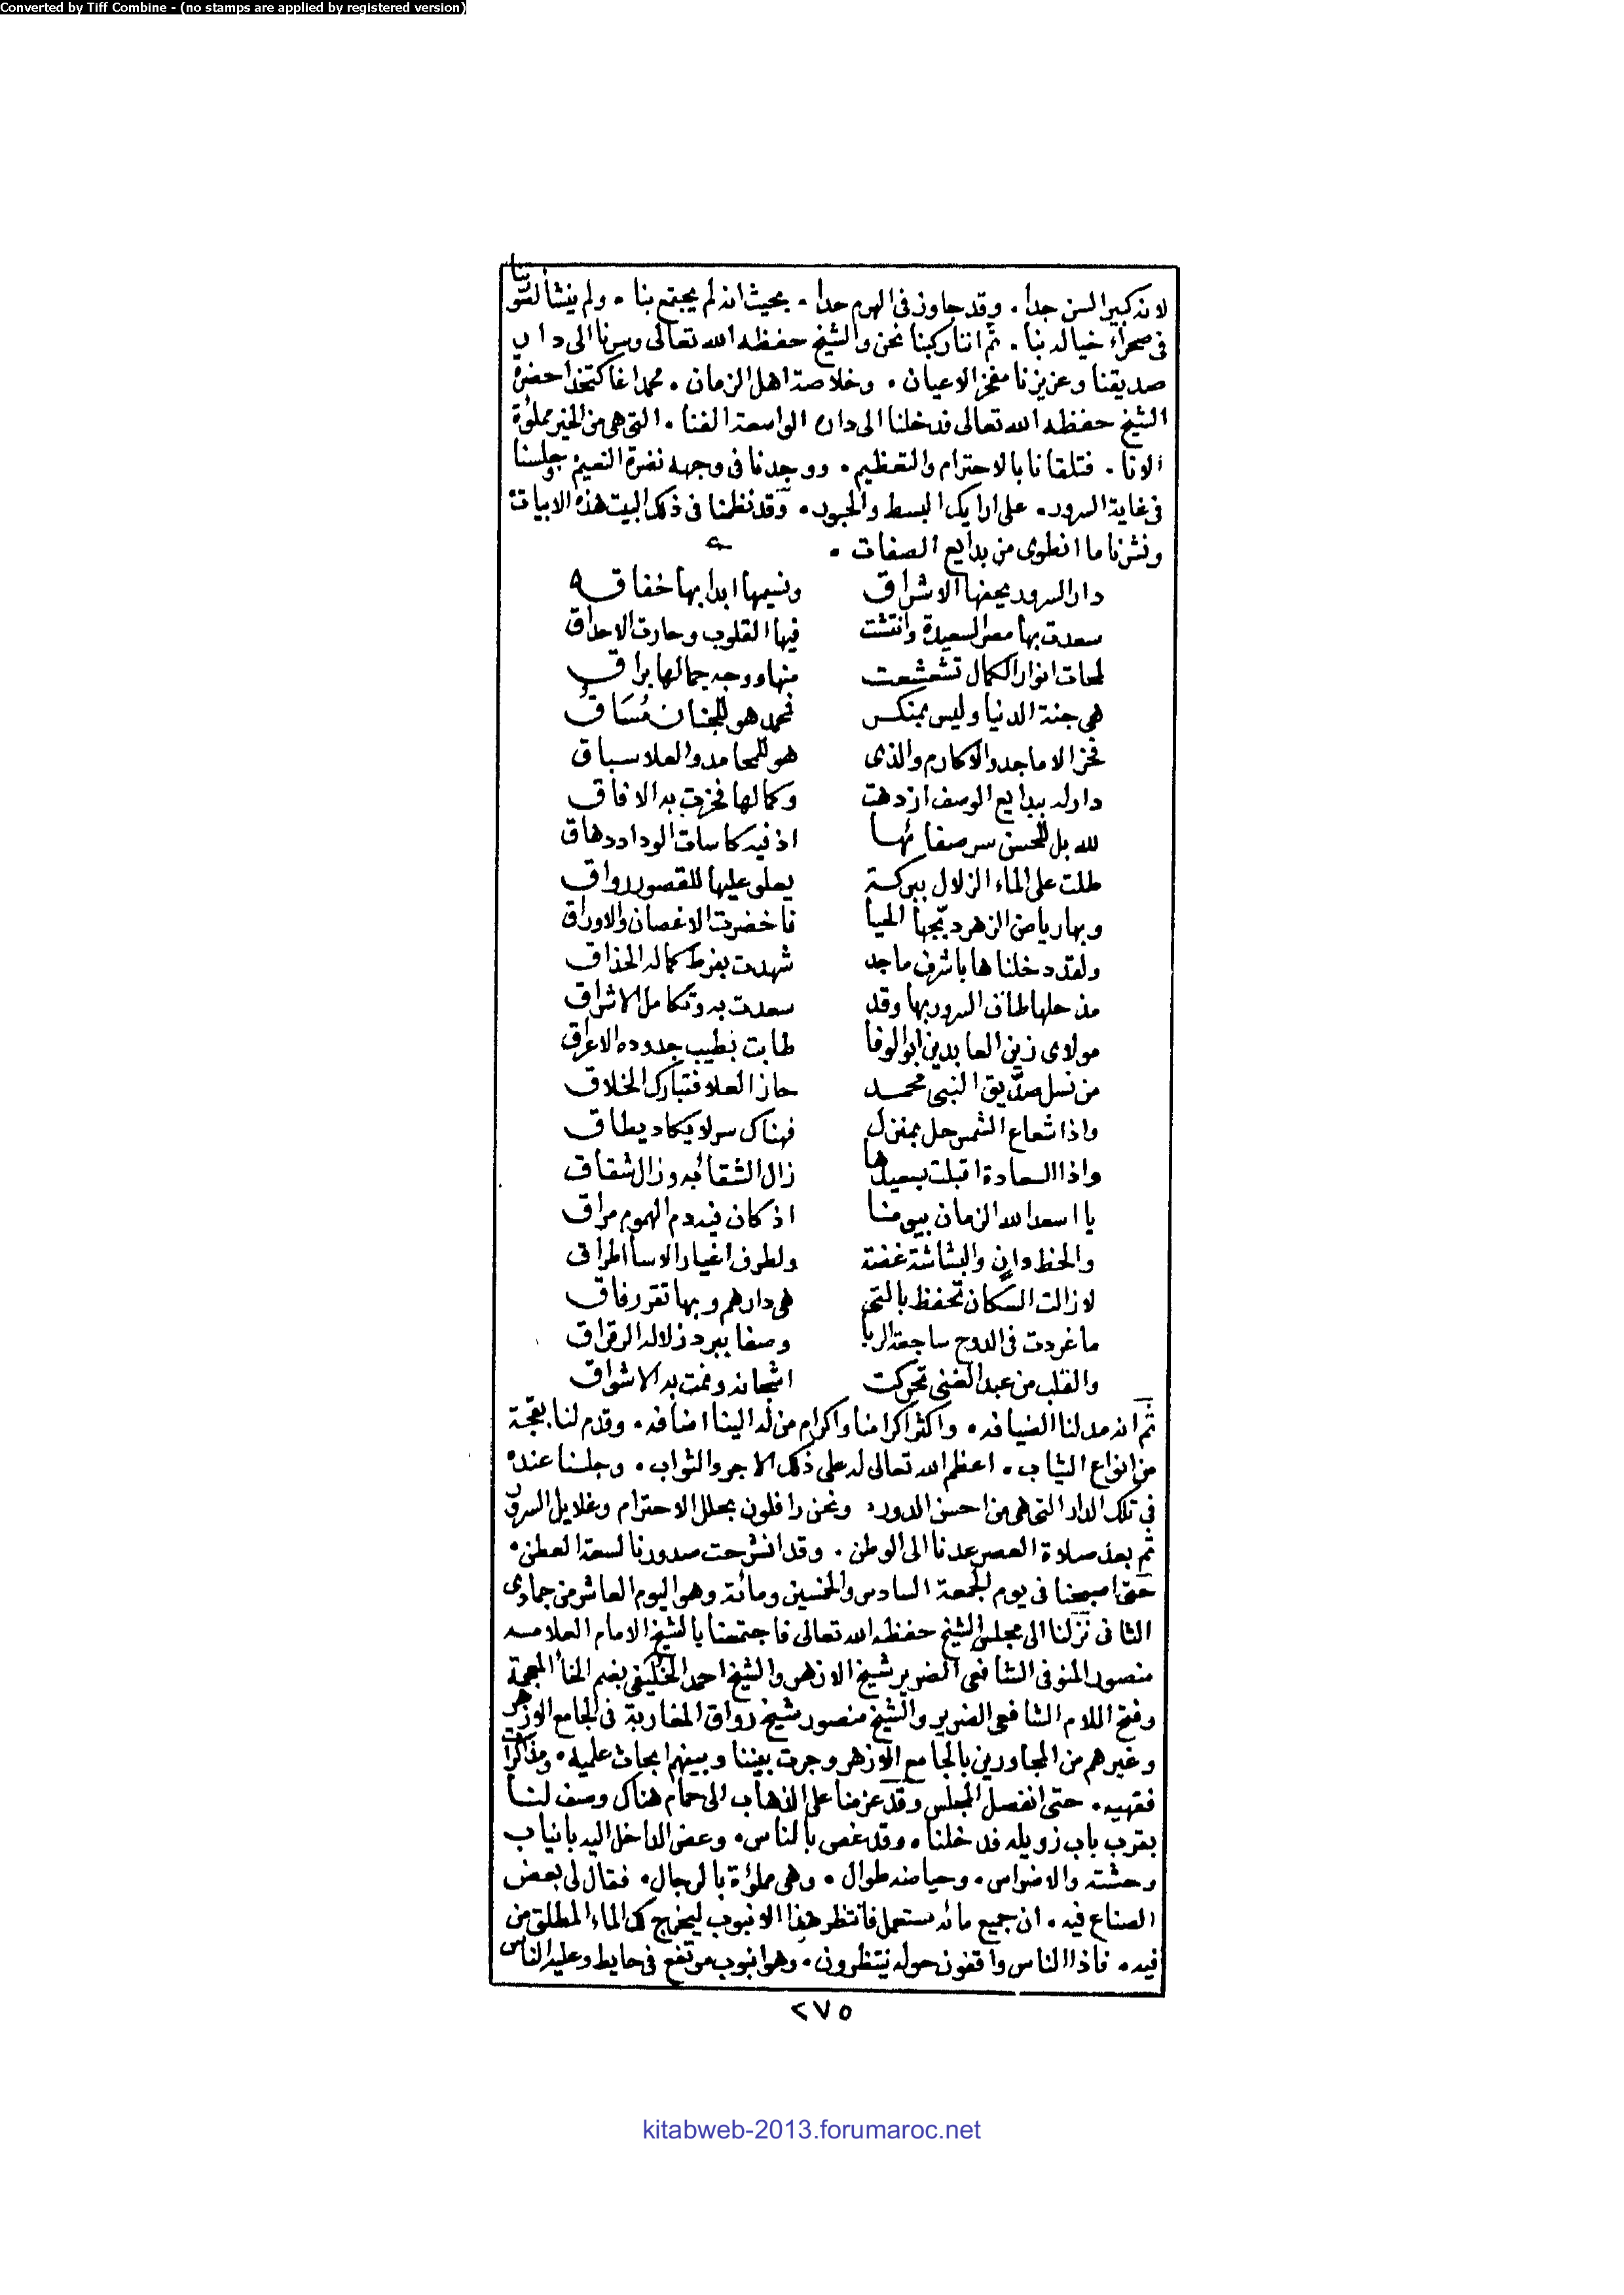 Converted by Tiff Combine - (no stamps are applied by registered version)
لانه كبير السن جدا . وقد جاوز فى الهرم حدا . بحيث انه لم يجتمع بنا . ولم ينشأ لقربنا
فى صحراء خياله بنا . ثم اننا ركبنا نحن والشيخ حفظه الله تعالى وسرنا الى دار
صديقنا وعزيزنا مفخر الاعيان . وخلاصة اهل الزمان . محمد اغا كتخدا حضرة
الشيخ حفظه الله تعالى فدخلنا الى داره الواسعة الفنا . التى هى من الخير مملؤة
الانا . فتلقانا بالاحترام والتعظيم . ووجدنا فى وجهه نضرة النعيم وجلسنا
فى غاية السرور . على ارايك البسط والحبور . وقد نظمنا فى ذلك البيت هذه الابيات
ونشرنا ما انطوى من بدايع الصفات .
دار السرور يحفها الاشراق ونسيمها ابدا بها خفاق
سعدت بها مصر السعيدة وانتشت فيها القلوب وحارت الاحداق
لمحات انوار الكمال تشعشعت منها ووجه جمالها براق
هى جنة الدنيا وليس بمنكر فمحمد هو للجنان مُسَاقُ
فخر الاماجد والاكارم والذى هو للمحامد والعلا سباق
دار له ببدايع الوصف ازدهت وكمالها فخرت به الافاق
لله بل للحسن سر صفائها اذ فيه كاسات الوداد دهاق
طلت على الماء الزلال ببركة يعلو عليها للقصور رواق
وبها رياض الزهر دبّجها الحيا فاخضرت الاغصان والاوراق
ولقد دخلناها باشرف ماجد شهدت بفرط كماله الحذاق
مذ حلها طاف السرور بها وقد سعدت به وتكامل الاشراق
مولاى زين العابدين ابو الوفا طابت بطيب جدوده الاعراق
من نسل صدّيق النبى محمد حاز العلا فتبارك الخلاق
واذا شعاع الشمس حل بمنزل فهناك سر لا يكاد يطاق
واذا السعادة اقبلت بسعيدها زال الشقا به وزال شقاق
يا اسعد الله الزمان بيومنا اذ كان فيه دم الهموم مراق
والحظ دانٍ والبشاشة غضة ولطرف اغيار الاسا اطراق
لا زالت السكان تحفظ بالتى هى دارهم وبها تقر رفاق
ما غردت فى الدوح ساجعة الربا وصفا ببرد زلاله الرقراق
والقلب من عبد الغنى تحركت اشجانه ونمت به الاشواق
ثم انه مد لنا الضيافه . واكثر اكرامنا واكرام من له الينا اضافه . وقدم لنا بقجة
من انواع الثياب . اعظم الله تعالى له على ذلك الاجر والثواب . وجلسنا عنده
فى تلك الدار التى هى من احسن الدور . ونحن رافلون بحلل الاحترام وغلايل السرور
ثم بعد صلاة العصر عدنا الى الوطن . وقد انشرحت صدورنا لسعة العطن .
حتى اصبحنا فى يوم الجمعة السادس والخمسين ومائة وهو اليوم العاشر من جمادى
الثانى نزلنا الى مجلس الشيخ حفظه الله تعالى فاجتمعنا بالشيخ الامام العلامه
منصور المنوفى الشافعى الضرير شيخ الازهر والشيخ احمد الخُلَيفى بضم الخاء المعجمة
وفتح اللام الشافعى الضرير والشيخ منصور شيخ رواق المغاربة فى الجامع الازهر
وغيرهم من المجاورين بالجامع الازهر وجرت بيننا وبينهم ابحاث علميه . ومذاكرات
فقهيه . حتى انفصل المجلس وقد عزمنا على الذهاب الى حمام هناك وصف لنا
بقرب باب زويله فدخلنا . وقد غص بالناس . وعض الداخل اليه بانياب
وحشته والاضراس . وحياضه طوال . وهى مملؤة بالرجال . فقال لى بعض
الصناع فيه . ان جميع مائه مستعمل فانتظر هذا الانبوب ليخرج لك الماء المطلق من
فيه . فاذا الناس واقفون حوله ينتظرون . وهو انبوب مرتفع فى حايط وعليه الناس
٢٧٥
kitabweb-2013.forumaroc.net